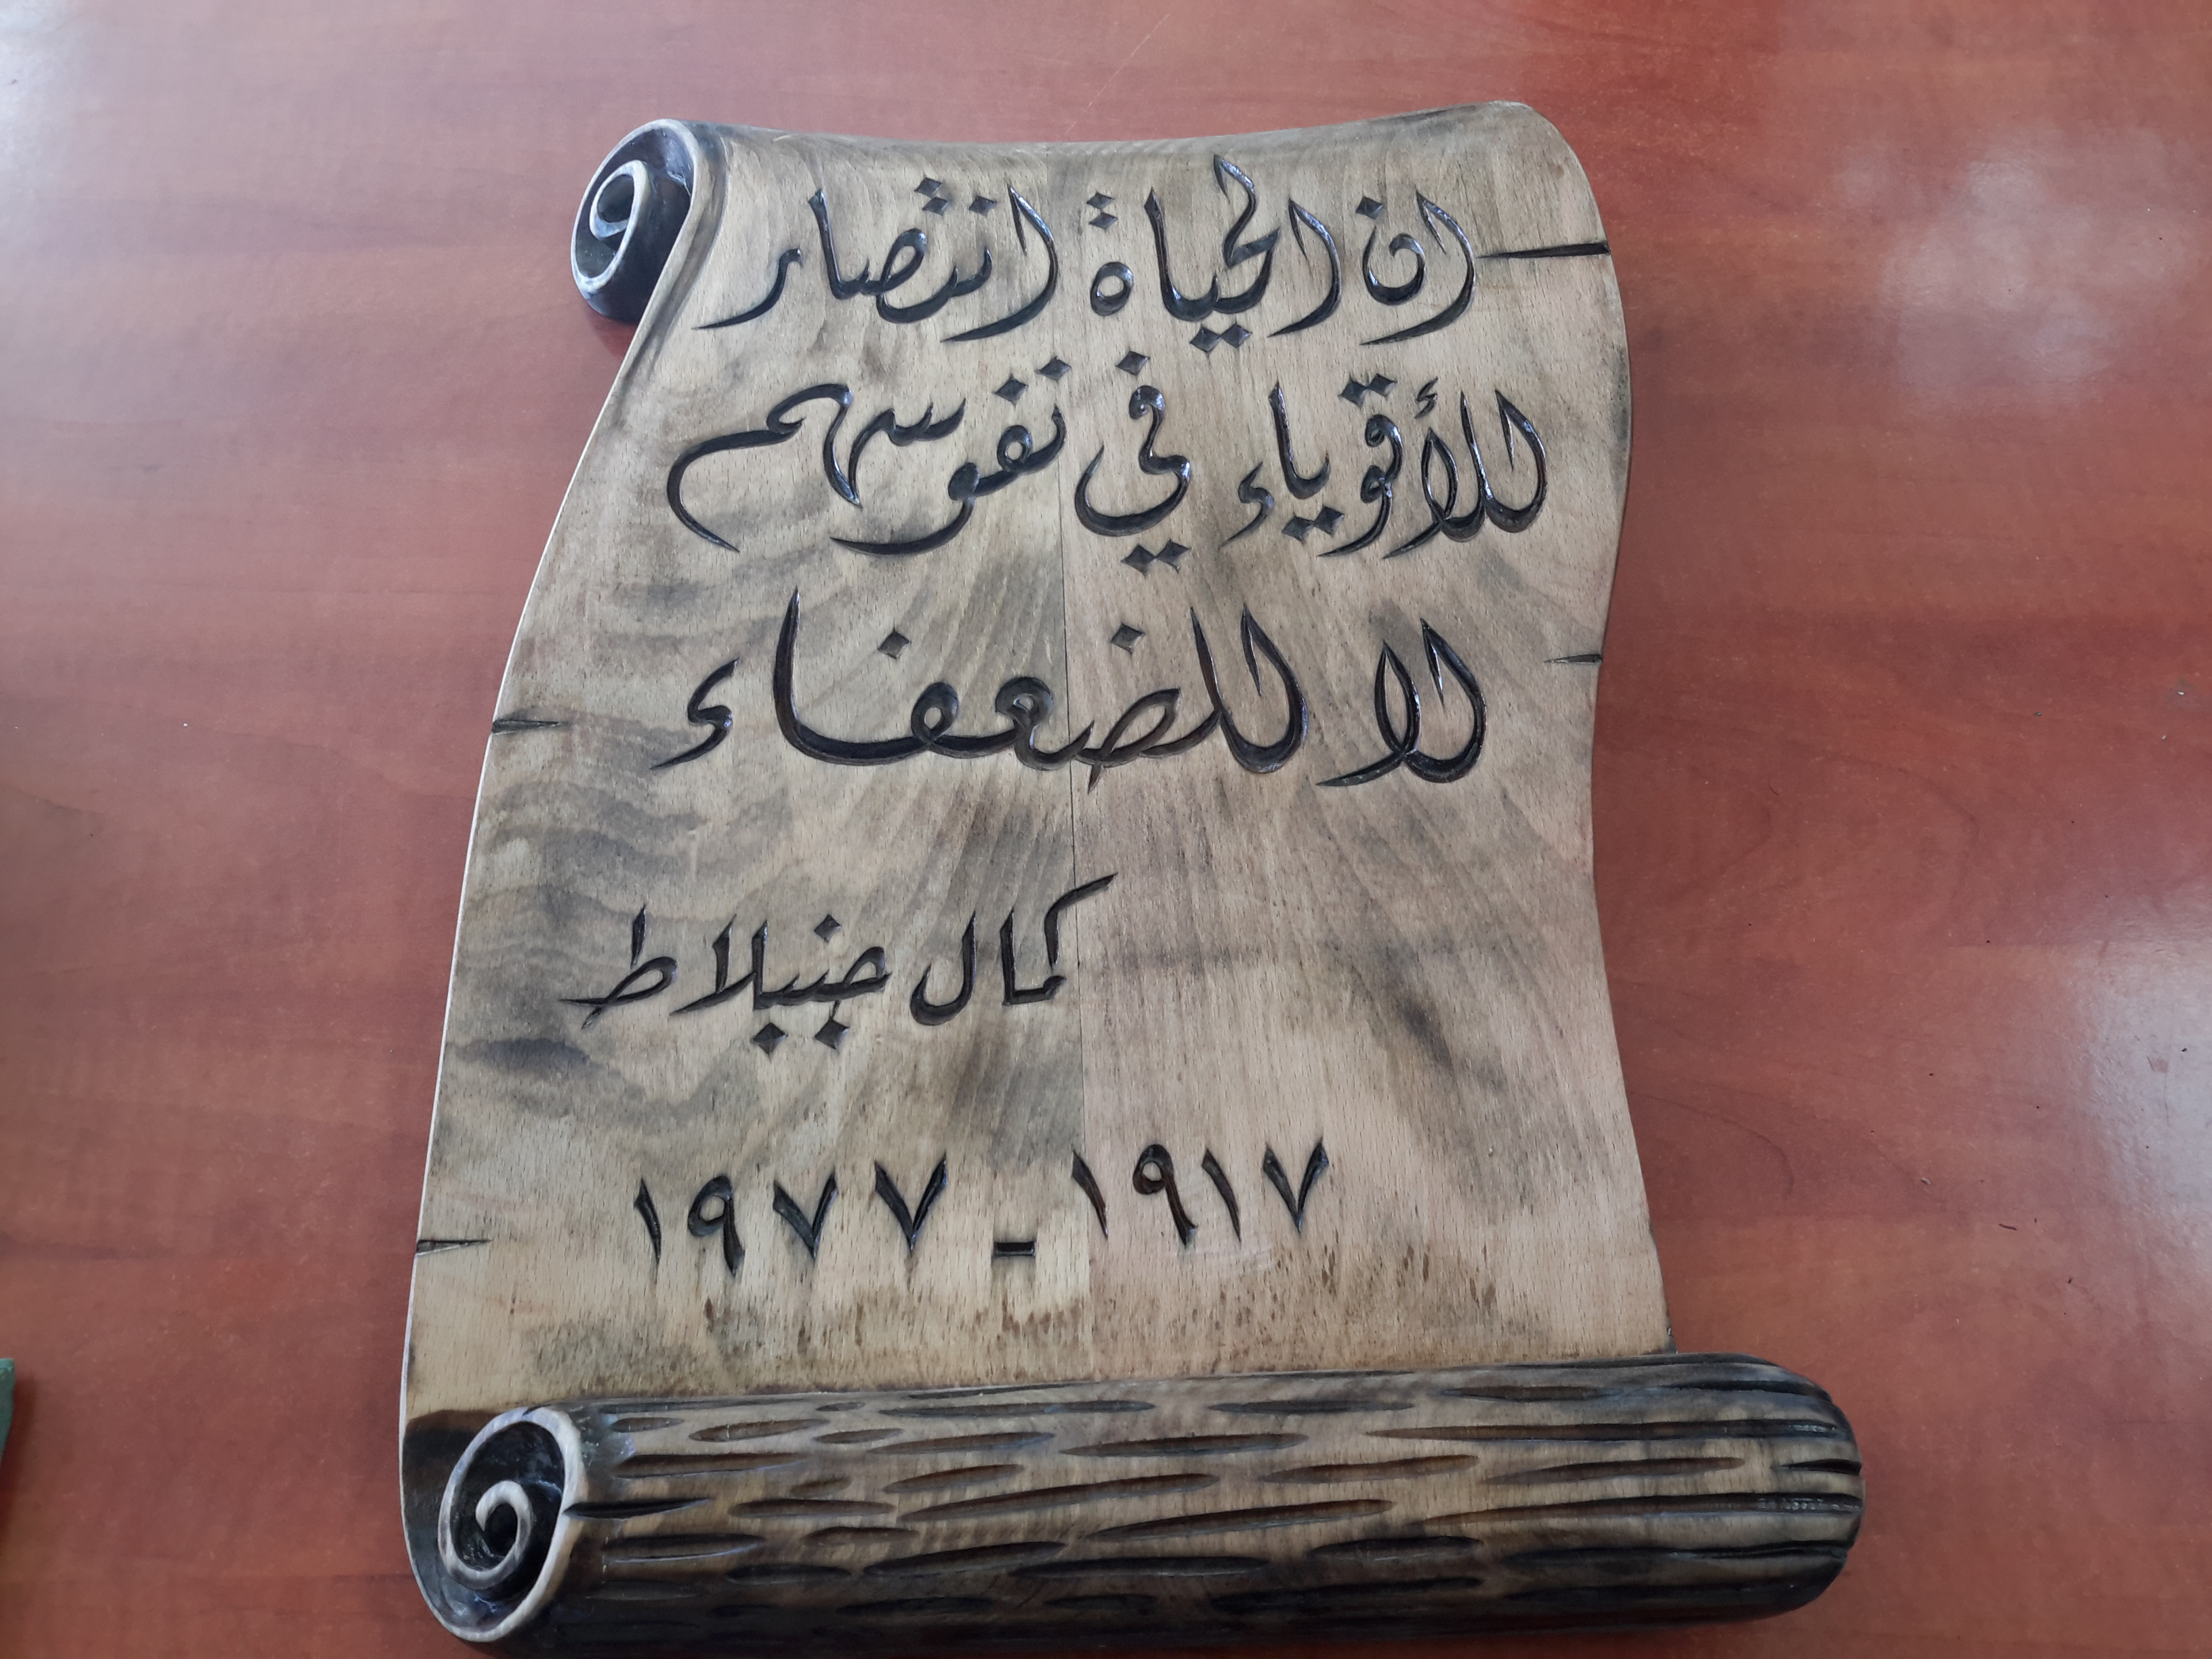 ان الحياة انتصار
للأقوياء في نفوسهم
لا للضعفاء
كمال جنبلاط
١٩١٧ - ١٩٧٧